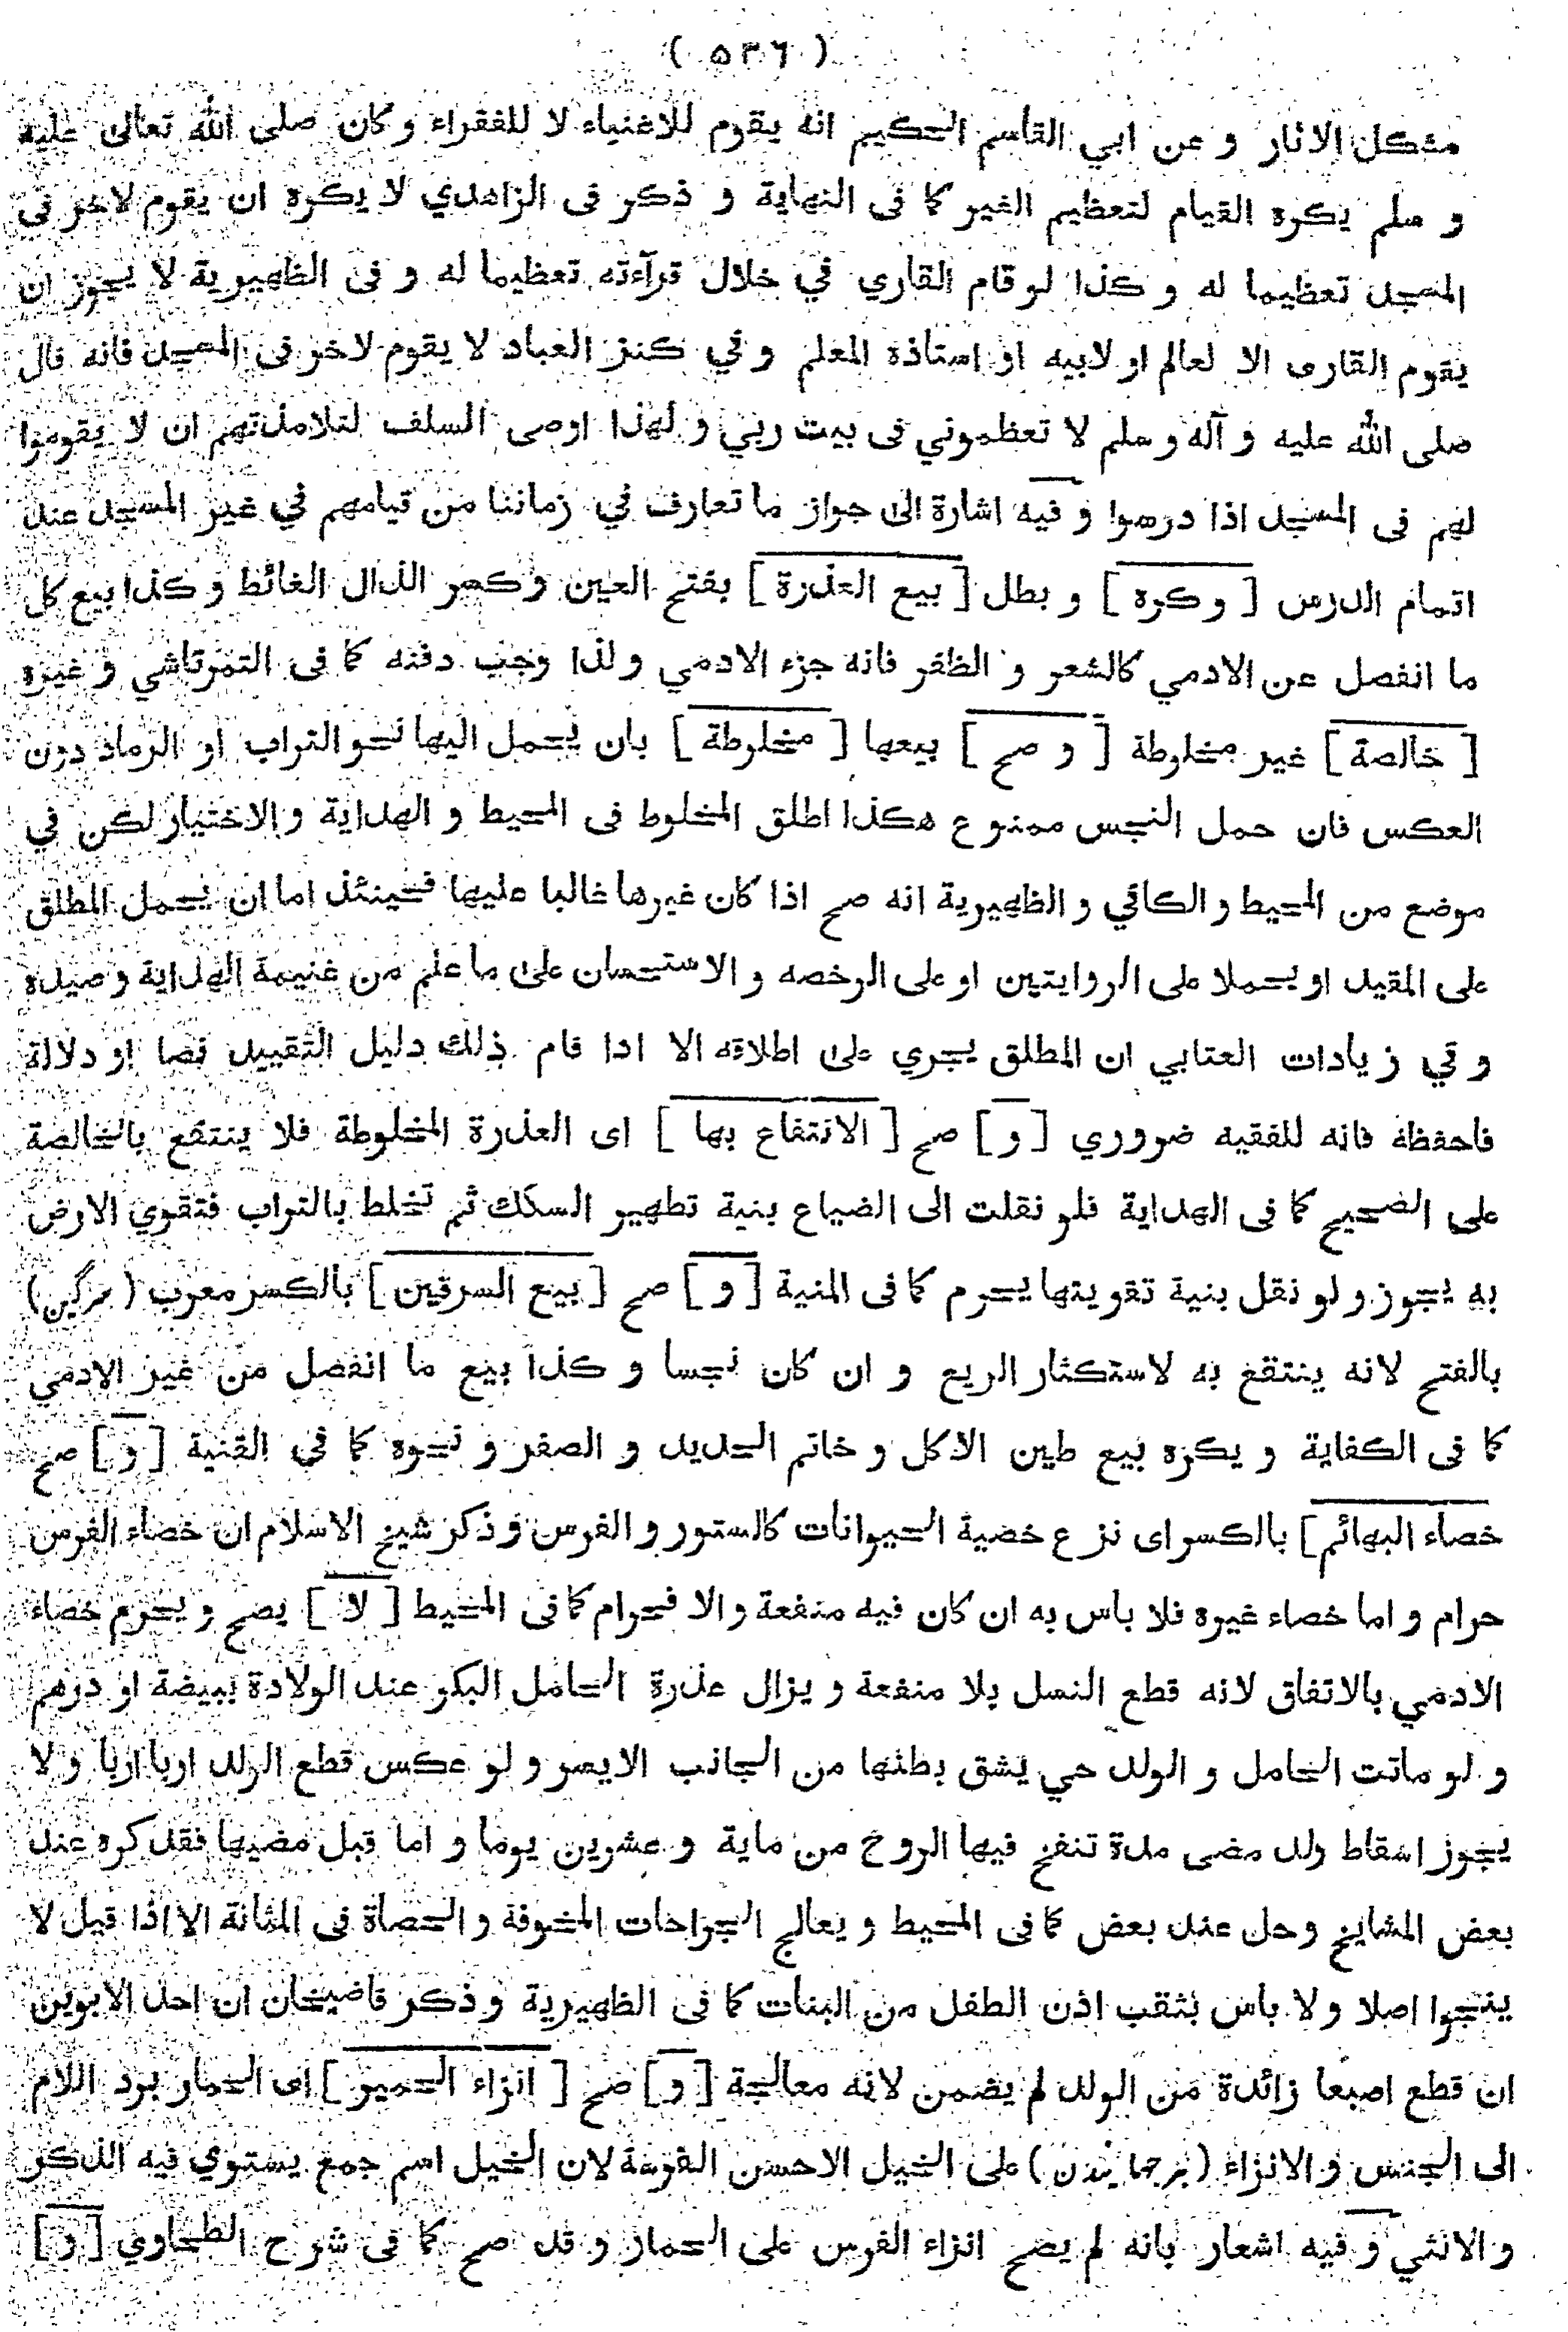 ( ٥٣٦ )
مشكل الاثار و عن ابي القاسم الحكيم انه يقوم للاغنياء لا للفقراء و كان صلى الله تعالى عليه
و سلم يكره القيام لتعظيم الغير كما فى النهاية و ذكر فى الزاهدي لا يكره ان يقوم لاخر فى
المسجد تعظيما له و كذا لو قام القاري في خلال قرآءته تعظيما له و فى الظهيرية لا يجوز ان
يقوم القارى الا لعالم او لابيه او استاذه المعلم و في كنز العباد لا يقوم لاخر فى المسجد فانه قال
صلى الله عليه و آله و سلم لا تعظموني فى بيت ربي و لهذا اوصى السلف لتلامذتهم ان لا يقوموا
لهم فى المسجد اذا درسوا و فيه اشارة الى جواز ما تعارف في زماننا من قيامهم في غير المسجد عند
اتمام الدرس [ و كره ] و بطل [ بيع العذرة ] بفتح العين و كسر الذال الغائط و كذا بيع كل
ما انفصل عن الادمي كالشعر و الظفر فانه جزء الادمي و لذا وجب دفنه كما فى التمرتاشي و غيره
[ خالصة ] غير مخلوطة [ و صح ] بيعها [ مخلوطة ] بان يحمل اليها نحو التراب او الرماد دون
العكس فان حمل النجس ممنوع هكذا اطلق المخلوط فى المحيط و الهداية و الاختيار لكن في
موضع من المحيط و الكافي و الظهيرية انه صح اذا كان غيرها غالبا عليها فحينئذ اما ان يحمل المطلق
على المقيد او يحملا على الروايتين او على الرخصه و الاستحسان على ما علم من غنيمة الهداية و صيده
و في زيادات العتابي ان المطلق يجري على اطلاقه الا اذا قام ذلك دليل التقييد نصا او دلالة
فاحفظه فانه للفقيه ضروري [ و ] صح [ الانتفاع بها ] اى العذرة المخلوطة فلا ينتفع بالخالصة
على الصحيح كما فى الهداية فلو نقلت الى الضياع بنية تطهير السكك ثم تخلط بالتراب فتقوي الارض
به يجوز و لو نقل بنية تقويتها يحرم كما فى المنية [ و ] صح [ بيع السرقين ] بالكسر معرب ( سرگين )
بالفتح لانه ينتفع به لاستكثار الريع و ان كان نجسا و كذا بيع ما انفصل من غير الادمي
كما فى الكفاية و يكره بيع طين الاكل و خاتم الحديد و الصفر و نحوه كما في القنية [ و ] صح
خصاء البهائم ] بالكسر اى نزع خصية الحيوانات كالستور و الفرس و ذكر شيخ الاسلام ان خصاء الفرس
حرام و اما خصاء غيره فلا باس به ان كان فيه منفعة و الا فحرام كما فى المحيط [ لا ] يصح و يحرم خصاء
الادمي بالاتفاق لانه قطع النسل بلا منفعة و يزال عذرة الحامل البكر عند الولادة ببيضة او درهم
و لو ماتت الحامل و الولد حي يشق بطنها من الجانب الايسر و لو عكس قطع الولد اربا اربا و لا
يجوز اسقاط ولد مضى مدة تنفخ فيها الروح من ماية و عشرين يوما و اما قبل مضيها فقد كره عند
بعض المشايخ و حل عند بعض كما فى المحيط و يعالج الجراحات المخوفة و الحصاة فى المثانة الا اذا قيل لا
ينجوا اصلا و لا باس بثقب اذن الطفل من البنات كما فى الظهيرية و ذكر قاضيخان ان احد الابوين
ان قطع اصبعا زائدة من الولد لم يضمن لانه معالجة [ و ] صح [ انزاء الحمير ] اى الحمار برد اللام
الى الجنس و الانزاء ( ) على الخيل الاحسن الفرسة لان الخيل اسم جمع يستوي فيه الذكر
و الانثي و فيه اشعار بانه لم يصح انزاء الفرس على الحمار و قد صح كما فى شرح الطحاوي [ و ]